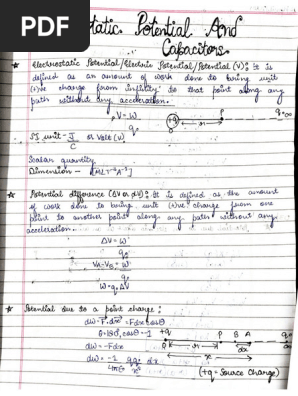 PDF
static Potential And
Capacitors.
Electrostatic Potential/Electric Potential/Potential (V): It is
defined as an amount of work done to bring unit
(+)ve charge from infinity to that point along any
path without any acceleration.
V = W
q₀
+q
P
q₀ ∞
r
SI unit - J or Volt (V)
C
Scalar quantity
Dimension -
Potential difference (ΔV or dV): It is defined as the amount
of work done to bring unit (+)ve charge from one
point to another point along any path without any
acceleration.
ΔV = W
q₀
W = q₀ ΔV
Potential due to a point charge:
dW = F.dx = Fdx cosθ
θ = 180°, cosθ = -1
dW = -Fdx
+q
P B A
r
dx
x
(+q = Source Charge)